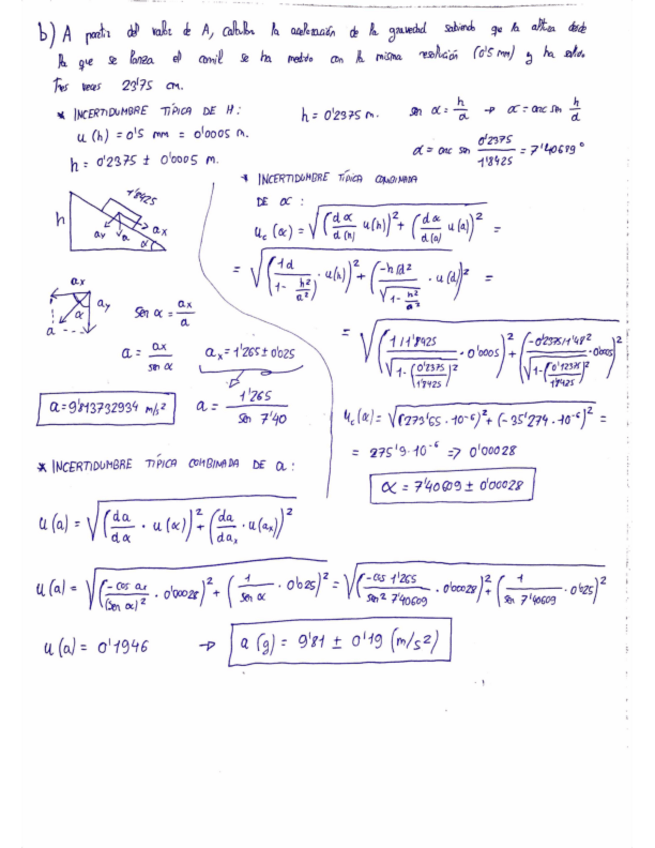 b) A partir del valor de A, calcular la aceleración de la gravedad sabiendo que la altura desde
la que se lanza el carril se ha medido con la misma resolución (0'5 mm) y ha salido
tres veces 23'75 cm.
* INCERTIDUMBRE TÍPICA DE H:
u(h) = 0'5 mm = 0'0005 m.
h = 0'2375 ± 0'0005 m.
h = 0'2375 m. sen α = h/a → α = arc sen h/d
α = arc sen 0'2375/1'8425 = 7'40609°
h 1'8425 ay a ax α
ax ay α a
sen α = ax/a
a = ax/sen α ax = 1'265 ± 0'025
a = 9'813732934 m/s² a = 1'265/sen 7'40
* INCERTIDUMBRE TÍPICA COMBINADA
DE α:
uc(α) = √((dα/d(h) u(h))² + (dα/d(a) u(a))²) =
= √((1d/1-h²/a² · u(h))² + (-h/d²/√1-h²/a² · u(d))²) =
= √((1/1'8425/√1-(0'2375/1'8425)² · 0'0005)² + (-0'2375/1'48²/√1-(0'12375/1'8425)² · 0'0005)²)
uc(α) = √((273'65 · 10⁻⁶)² + (-35'274 · 10⁻⁶)²) =
= 275'9 · 10⁻⁶ => 0'00028
α = 7'40609 ± 0'00028
* INCERTIDUMBRE TÍPICA COMBINADA DE a:
u(a) = √((da/dα · u(α))² + (da/dax · u(ax))²)
u(a) = √((-cos ax/(sen α)² · 0'00028)² + (1/sen α · 0'025)²) = √((-cos 1'265/sen² 7'40609 · 0'00028)² + (1/sen 7'40609 · 0'025)²)
u(a) = 0'1946 → a (g) = 9'81 ± 0'19 (m/s²)